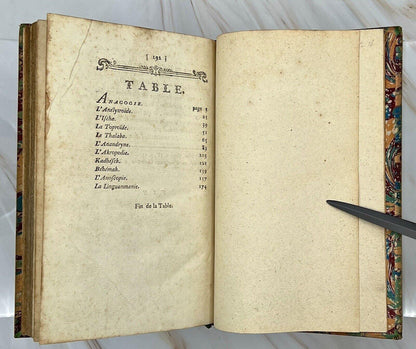 [ 192 ]
TABLE.
ANAGOGIE. page 5
L'Anelytroïde. 25
L'Ischa. 39
La Tropoïde. 51
Le Thalaba. 65
L'Anandryne. 83
L'Akropodie. 105
Kadhésch. 121
Béhémah. 139
L'Anoscopie. 157
La Linguanmanie. 174
Fin de la Table.